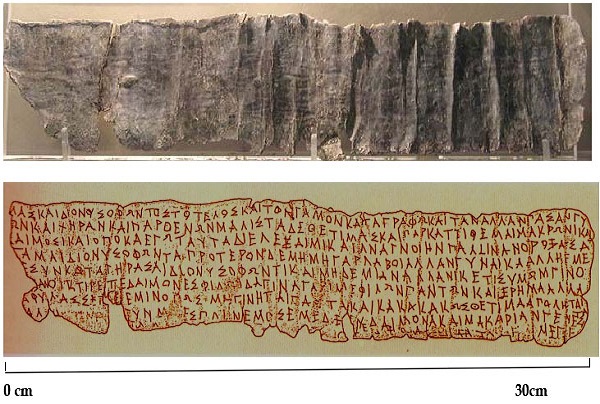 ΜΑΣΚΑΙΔΙΟΝΥΣΟΦΩΝΤΟΣΤΟΤΕΛΟΣΚΑΙΤΟΝΓΑΜΟΝΚΑΤΑΓΡΑΦΩΚΑΙΤΑΝΑΛΛΑΝΠΑΣΑΝΓΥ
ΩΝΚΑΙΧΗΡΑΝΚΑΙΠΑΡΘΕΝΩΝΜΑΛΙΣΤΑΔΕΘΕΤΙΜΑΣΚΑΙΠΑΡΚΑΤΤΙΘΕΜΑΙΜΑΚΡΩΝΙΚΑΙ
ΔΑΙΜΟΣΙΚΑΙΟΠΟΚΑΕΓΩΤΑΥΤΑΔΙΕΛΕΞΑΙΜΙΚΑΙΑΝΑΓΝΟΙΗΝΠΑΛΙΝΑΝΟΡΟΞΑΣΑ
ΓΑΜΑΙΔΙΟΝΥΣΟΦΩΝΤΑΠΡΟΤΕΡΟΝΔΕΜΗΜΗΓΑΡΛΑΒΟΙΑΛΛΑΝΓΥΝΑΙΚΑΑΛΛΗΕΜΕ
ΕΣΥΝΚΑΤΑΓΗΡΑΣΑΙΔΙΟΝΥΣΟΦΩΝΤΙΚΑΙΜΗΔΕΜΙΑΝΑΛΛΑΝΙΚΕΤΙΣΥΜΩΜΓΙΝΟ
ΑΝΟΙΚΤΙΡΕΤΕΔΑΙΜΟΝΕΣΦΙΛΟΙΔΑΓΙΝΑΓΑΡΙΜΕΦΙΛΩΝΠΑΝΤΩΝΚΑΙΕΡΗΜΑΑΛΛΑ
ΦΥΛΑΣΣΕΤΕΕΜΙΝΟΠΩΣΜΗΓΙΝΗΤΑΙΤΑΥΤΑΚΑΙΚΑΚΑΚΑΚΩΣΘΕΤΙΜΑΑΠΟΛΗΤΑΙ
ΕΣΠΛΗΝΕΜΟΣΕΜΕΔΕΥΔΑΙΜΟΝΑΚΑΙΜΑΚΑΡΙΑΝΓΕΝΕΣ
0 cm 30cm